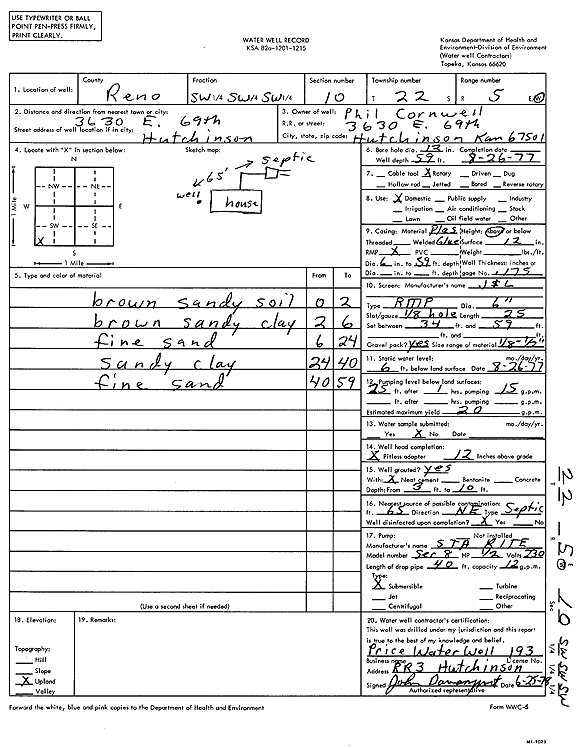 USE TYPEWRITER OR BALL
POINT PEN-PRESS FIRMLY,
PRINT CLEARLY.
WATER WELL RECORD
KSA 82a-1201-1215
Kansas Department of Health and
Environment-Division of Environment
(Water well Contractors)
Topeka, Kansas 66620
1. Location of well: County Reno Fraction SW 1/4 SW 1/4 SW 1/4 Section number 10 Township number T 22 S Range number R 5 E/W
2. Distance and direction from nearest town or city:
3630 E. 69th
Street address of well location if in city: Hutchinson
3. Owner of well: Phil Cornwell
R.R. or street: 3630 E. 69th
City, state, zip code: Hutchinson Kan 67501
4. Locate with "X" in section below:
N
1 Mile
NW NE
W E
SW SE
X
S
1 Mile
Sketch map:
septic
65'
well
house
6. Bore hole dia. 12 in. Completion date
Well depth 59 ft. 8-26-77
7. Cable tool X Rotary Driven Dug
Hollow rod Jetted Bored Reverse rotary
8. Use: X Domestic Public supply Industry
Irrigation Air conditioning Stock
Lawn Oil field water Other
9. Casing: Material Plas Height: Above or below
Threaded Welded Glue Surface 12 in.
RMP X PVC Weight lbs./ft.
Dia. 6 in. to 59 ft. depth Wall Thickness: inches or
Dia. in. to ft. depth gage No. .175
5. Type and color of material From To
brown sandy soil 0 2
brown sandy clay 2 6
fine sand 6 24
sandy clay 24 40
fine sand 40 59
(Use a second sheet if needed)
10. Screen: Manufacturer's name J & L
Type RMP Dia. 6"
Slot/gauze 1/8 hole Length 25
Set between 34 ft. and 59 ft.
ft. and ft.
Gravel pack? yes Size range of material 1/8-1/2"
11. Static water level: mo./day/yr.
6 ft. below land surface Date 8-26-77
12. Pumping level below land surfaces:
25 ft. after 1 hrs. pumping 15 g.p.m.
ft. after hrs. pumping g.p.m.
Estimated maximum yield 20 g.p.m.
13. Water sample submitted: mo./day/yr.
Yes X No Date
14. Well head completion:
X Pitless adapter 12 Inches above grade
15. Well grouted? yes
With: X Neat cement Bentonite Concrete
Depth: From 3 ft. to 10 ft.
16. Nearest source of possible contamination:
ft. 65 Direction NE Type Septic
Well disinfected upon completion? X Yes No
17. Pump: Not installed
Manufacturer's name STA RITE
Model number Ser 8 HP 1/2 Volts 230
Length of drop pipe 40 ft. capacity 12 g.p.m.
Type:
X Submersible Turbine
Jet Reciprocating
Centrifugal Other
18. Elevation:
Topography:
Hill
Slope
X Upland
Valley
19. Remarks:
20. Water well contractor's certification:
This well was drilled under my jurisdiction and this report
is true to the best of my knowledge and belief.
Price Water Well 193
Business name License No.
Address RR3 Hutchinson
Signed John Date 6-25-78
Authorized representative
T 22 R 5 W Sec 10 SW 1/4 SW 1/4 SW 1/4
Forward the white, blue and pink copies to the Department of Health and Environment
Form WWC-5